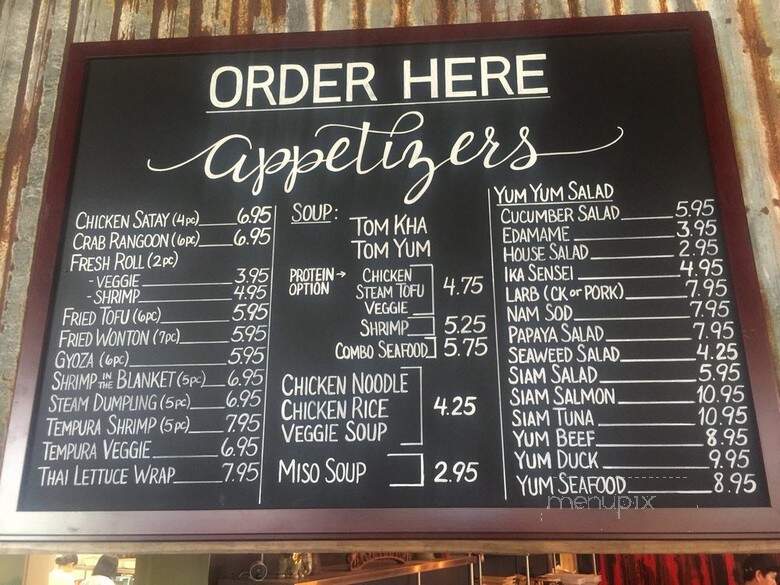 ORDER HERE
appetizers
CHICKEN SATAY (4pc) 6.95
CRAB RANGOON (6pc) 6.95
FRESH ROLL (2pc)
- VEGGIE 3.95
- SHRIMP 4.95
FRIED TOFU (6pc) 5.95
FRIED WONTON (7pc) 5.95
GYOZA (6pc) 5.95
SHRIMP IN THE BLANKET (5pc) 6.95
STEAM DUMPLING (5pc) 6.95
TEMPURA SHRIMP (5pc) 7.95
TEMPURA VEGGIE 6.95
THAI LETTUCE WRAP 7.95
SOUP:
TOM KHA
TOM YUM
PROTEIN → OPTION
CHICKEN
STEAM TOFU 4.75
VEGGIE
SHRIMP 5.25
COMBO SEAFOOD 5.75
CHICKEN NOODLE
CHICKEN RICE 4.25
VEGGIE SOUP
MISO SOUP 2.95
YUM YUM SALAD
CUCUMBER SALAD 5.95
EDAMAME 3.95
HOUSE SALAD 2.95
IKA SENSEI 4.95
LARB (CK or PORK) 7.95
NAM SOD 7.95
PAPAYA SALAD 7.95
SEAWEED SALAD 4.25
SIAM SALAD 5.95
SIAM SALMON 10.95
SIAM TUNA 10.95
YUM BEEF 8.95
YUM DUCK 9.95
YUM SEAFOOD 8.95
menupix